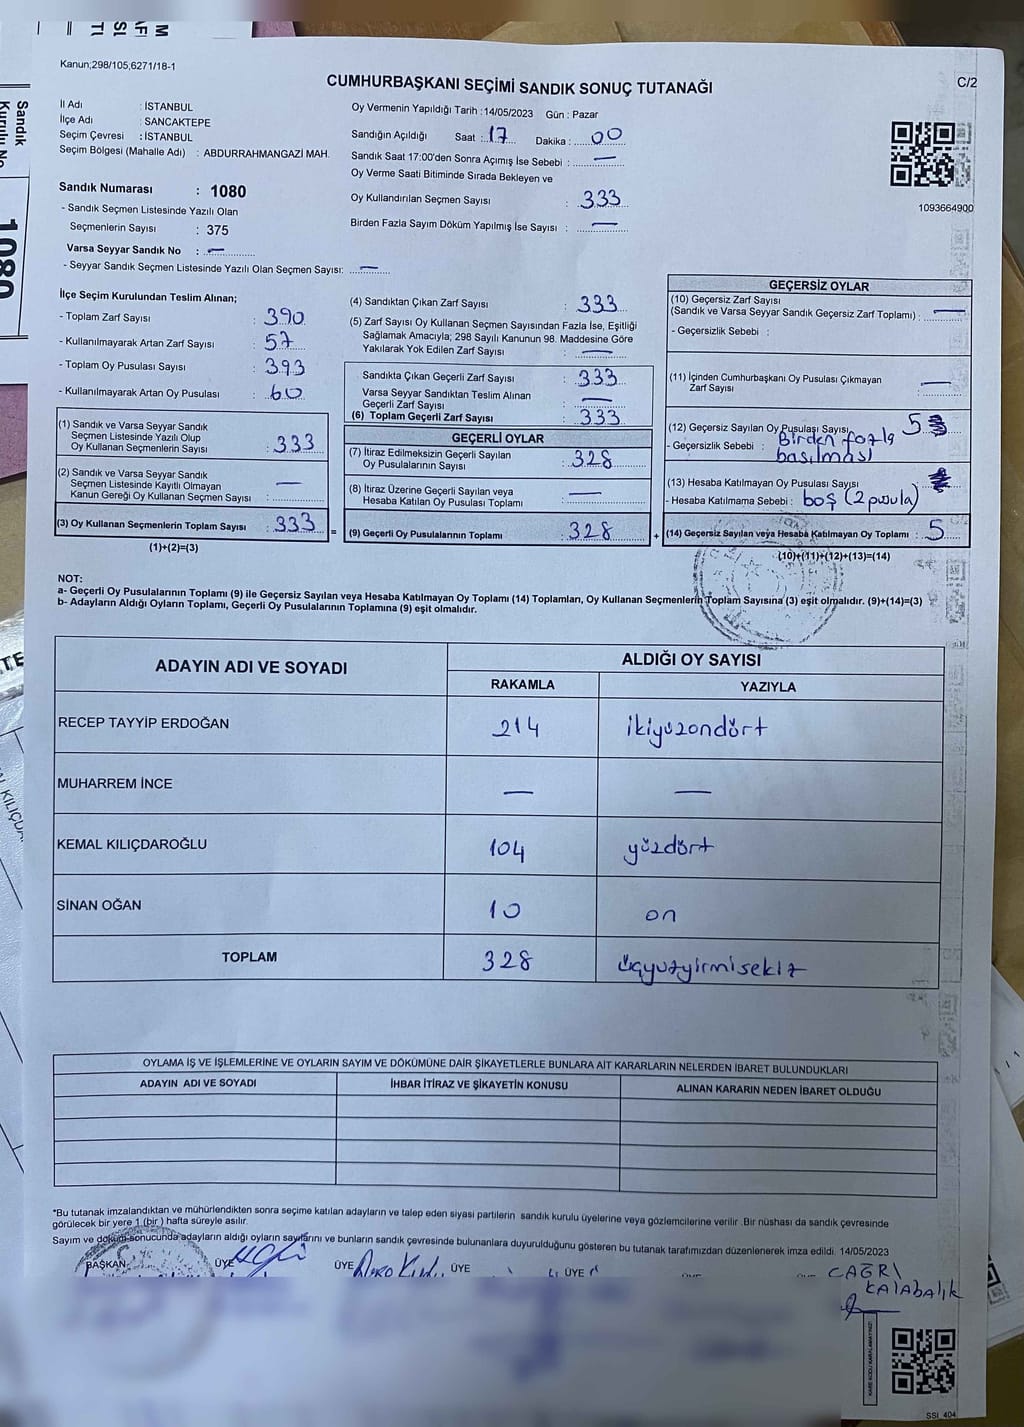 Kanun;298/105,6271/18-1
CUMHURBAŞKANI SEÇİMİ SANDIK SONUÇ TUTANAĞI
C/2
İl Adı : İSTANBUL
İlçe Adı : SANCAKTEPE
Seçim Çevresi : İSTANBUL
Seçim Bölgesi (Mahalle Adı) : ABDURRAHMANGAZİ MAH.
Oy Vermenin Yapıldığı Tarih :14/05/2023 Gün : Pazar
Sandığın Açıldığı Saat : 17 Dakika : 00
Sandık Saat 17:00'den Sonra Açımış İse Sebebi : —
Oy Verme Saati Bitiminde Sırada Bekleyen ve
Oy Kullandırılan Seçmen Sayısı : 333
Birden Fazla Sayım Döküm Yapılmış İse Sayısı : —
1093664900
Sandık Numarası : 1080
- Sandık Seçmen Listesinde Yazılı Olan
Seçmenlerin Sayısı : 375
Varsa Seyyar Sandık No : —
- Seyyar Sandık Seçmen Listesinde Yazılı Olan Seçmen Sayısı: —
İlçe Seçim Kurulundan Teslim Alınan;
- Toplam Zarf Sayısı : 390
- Kullanılmayarak Artan Zarf Sayısı : 57
- Toplam Oy Pusulası Sayısı : 393
- Kullanılmayarak Artan Oy Pusulası : 60
(1) Sandık ve Varsa Seyyar Sandık
Seçmen Listesinde Yazılı Olup
Oy Kullanan Seçmenlerin Sayısı : 333
(2) Sandık ve Varsa Seyyar Sandık
Seçmen Listesinde Kayıtlı Olmayan
Kanun Gereği Oy Kullanan Seçmen Sayısı : —
(3) Oy Kullanan Seçmenlerin Toplam Sayısı : 333 =
(1)+(2)=(3)
(4) Sandıktan Çıkan Zarf Sayısı : 333
(5) Zarf Sayısı Oy Kullanan Seçmen Sayısından Fazla İse, Eşitliği
Sağlamak Amacıyla; 298 Sayılı Kanunun 98. Maddesine Göre
Yakılarak Yok Edilen Zarf Sayısı : —
Sandıkta Çıkan Geçerli Zarf Sayısı : 333
Varsa Seyyar Sandıktan Teslim Alınan
Geçerli Zarf Sayısı : —
(6) Toplam Geçerli Zarf Sayısı : 333
GEÇERLİ OYLAR
(7) İtiraz Edilmeksizin Geçerli Sayılan
Oy Pusulalarının Sayısı : 328
(8) İtiraz Üzerine Geçerli Sayılan veya
Hesaba Katılan Oy Pusulası Toplamı : —
(9) Geçerli Oy Pusulalarının Toplamı : 328 +
GEÇERSİZ OYLAR
(10) Geçersiz Zarf Sayısı
(Sandık ve Varsa Seyyar Sandık Geçersiz Zarf Toplamı) : —
- Geçersizlik Sebebi :
(11) İçinden Cumhurbaşkanı Oy Pusulası Çıkmayan
Zarf Sayısı : —
(12) Geçersiz Sayılan Oy Pusulası Sayısı : 5
- Geçersizlik Sebebi : Birden fazla
basılması
(13) Hesaba Katılmayan Oy Pusulası Sayısı
- Hesaba Katılmama Sebebi : boş (2 pusula)
(14) Geçersiz Sayılan veya Hesaba Katılmayan Oy Toplamı : 5
(10)+(11)+(12)+(13)=(14)
NOT:
a- Geçerli Oy Pusulalarının Toplamı (9) ile Geçersiz Sayılan veya Hesaba Katılmayan Oy Toplamı (14) Toplamları, Oy Kullanan Seçmenlerin Toplam Sayısına (3) eşit olmalıdır. (9)+(14)=(3)
b- Adayların Aldığı Oyların Toplamı, Geçerli Oy Pusulalarının Toplamına (9) eşit olmalıdır.
ADAYIN ADI VE SOYADI
ALDIĞI OY SAYISI
RAKAMLA YAZIYLA
RECEP TAYYİP ERDOĞAN 214 ikiyüzondört
MUHARREM İNCE — —
KEMAL KILIÇDAROĞLU 104 yüzdört
SİNAN OĞAN 10 on
TOPLAM 328 üçyüzyirmisekiz
OYLAMA İŞ VE İŞLEMLERİNE VE OYLARIN SAYIM VE DÖKÜMÜNE DAİR ŞİKAYETLERLE BUNLARA AİT KARARLARIN NELERDEN İBARET BULUNDUKLARI
ADAYIN ADI VE SOYADI İHBAR İTİRAZ VE ŞİKAYETİN KONUSU ALINAN KARARIN NEDEN İBARET OLDUĞU
*Bu tutanak imzalandıktan ve mühürlendikten sonra seçime katılan adayların ve talep eden siyasi partilerin sandık kurulu üyelerine veya gözlemcilerine verilir .Bir nüshası da sandık çevresinde
görülecek bir yere 1 (bir ) hafta süreyle asılır.
Sayım ve döküm sonucunda adayların aldığı oyların sayılarını ve bunların sandık çevresinde bulunanlara duyurulduğunu gösteren bu tutanak tarafımızdan düzenlenerek imza edildi. 14/05/2023
BAŞKAN ÜYE ÜYE ÜYE ÜYE
ÇAĞRI
KALABALIK
SSI_404
Sandık
Kurulu No
1080